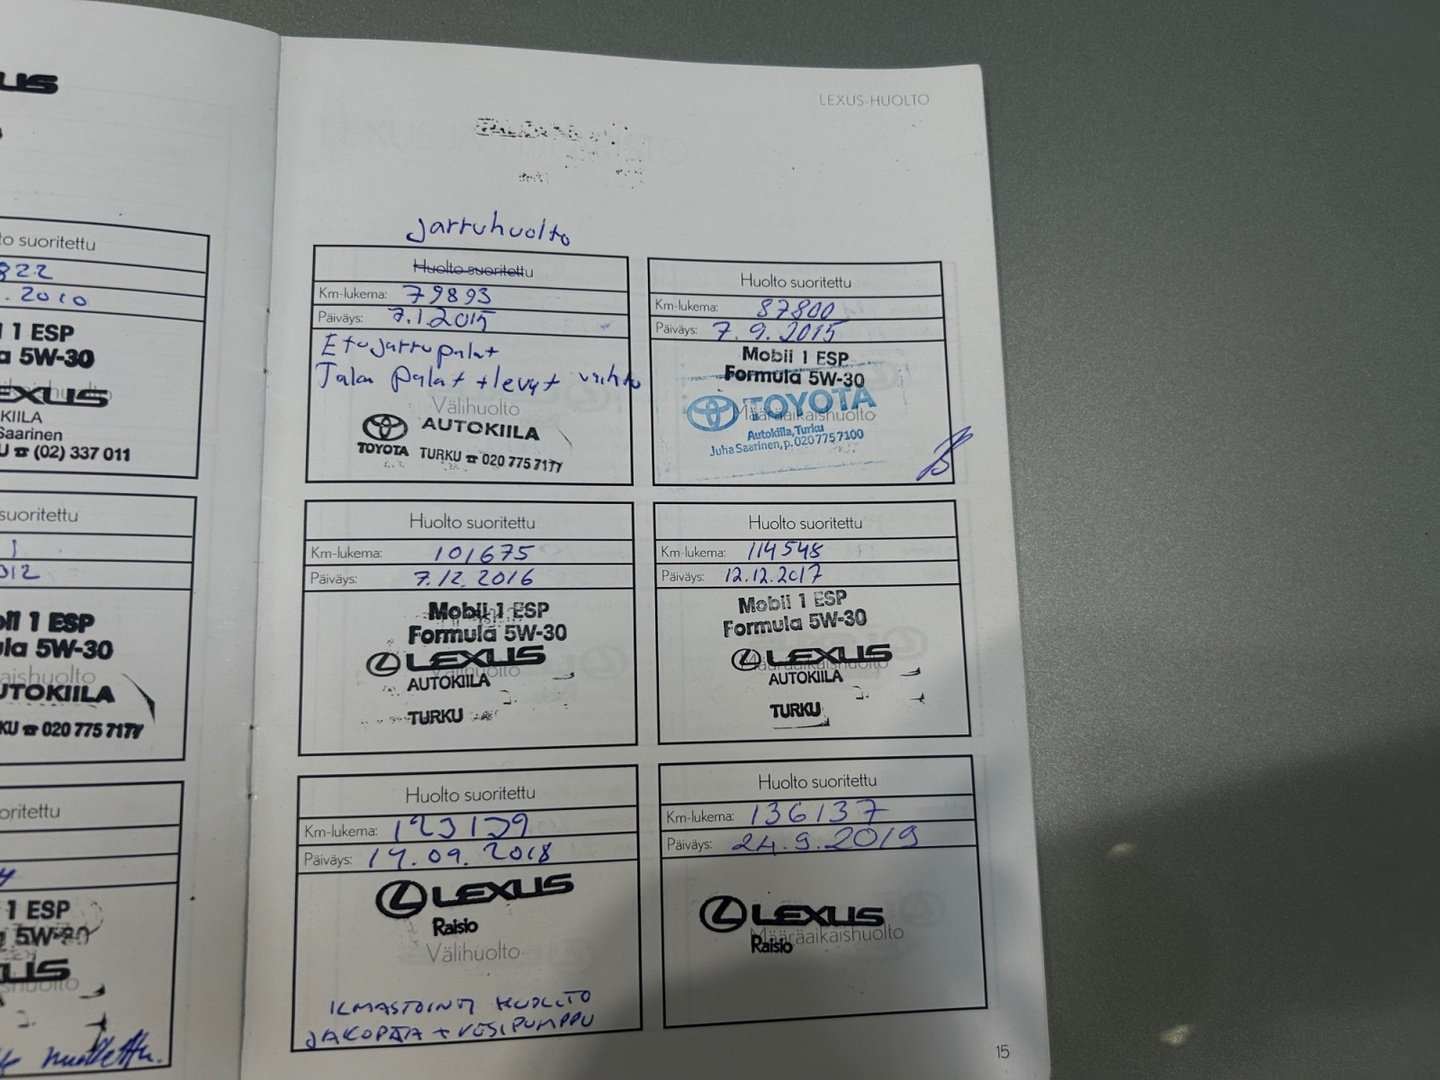 LEXUS-HUOLTO
US
to suoritettu
822
.2010
1 1 ESP
a 5W-30
EXUS
KIILA
Saarinen
U ☎ (02) 337 011
suoritettu
1
012
bil 1 ESP
ula 5W-30
aishuolto
UTOKIILA
KU ☎ 020 775 7177
oritettu
1 ESP
5W-30
US
huolto
Jarruhuolto
Huolto suoritettu
Km-lukema: 79893
Päiväys: 7.1.2015
Etujarrupalat
Taka palat + levyt vaihto
Välihuolto
TOYOTA AUTOKIILA
TURKU ☎ 020 775 7177
Huolto suoritettu
Km-lukema: 87800
Päiväys: 7.9.2015
Mobil 1 ESP
Formula 5W-30
TOYOTA
Määräaikaishuolto
Autokiila, Turku
Juha Saarinen, p. 020 775 7100
Huolto suoritettu
Km-lukema: 101675
Päiväys: 7.12.2016
Mobil 1 ESP
Formula 5W-30
LEXUS
Välihuolto
AUTOKIILA
TURKU
Huolto suoritettu
Km-lukema: 114548
Päiväys: 12.12.2017
Mobil 1 ESP
Formula 5W-30
LEXUS
Määräaikaishuolto
AUTOKIILA
TURKU
Huolto suoritettu
Km-lukema: 123139
Päiväys: 14.09.2018
LEXUS
Raisio
Välihuolto
ILMASTOINTI HUOLTO
JAKOPÄÄ + VESIPUMPPU
Huolto suoritettu
Km-lukema: 136137
Päiväys: 24.9.2019
LEXUS
Määräaikaishuolto
Raisio
15